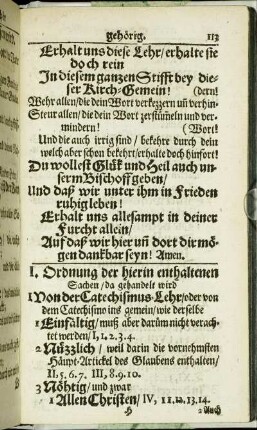 gehörig. 113
Erhalt uns diese Lehr/ erhalte sie
doch rein
In diesem ganzen Stifft bey die-
ser Kirch-Gemein! (dern!
Wehr allen/ die dein Wort verkezzern uñ verhin-
Steur allen/ die dein Wort zerstümeln und ver-
mindern! (Wort!
Und die auch irrig sind/ bekehre durch dein
welch aber schon bekehrt/ erhalte doch hinfort!
Du wollest Glük und Heil auch un-
serm Bischoff geben/
Und daß wir unter ihm in Frieden
ruhig leben!
Erhalt uns allesampt in deiner
Furcht allein/
Auf daß wir hier uñ dort dir mö-
gen dankbar seyn! Amen.
I. Ordnung der hierin enthaltenen
Sachen/ da gehandelt wird
1 Von der Catechismus-Lehr/ oder von
dem Catechismo ins gemein/ wie derselbe
1 Einfältig/ muß aber darüm nicht verach-
tet werden/ I, 1. 2. 3. 4.
2 Nüzzlich/ weil darin die vornehmsten
Häupt-Artickel des Glaubens enthalten/
II. 5. 6. 7. III, 8. 9. 10.
3 Nöhtig/ und zwar
1 Allen Christen/ IV, 11. 12. 13. 14.
H 2 Auch